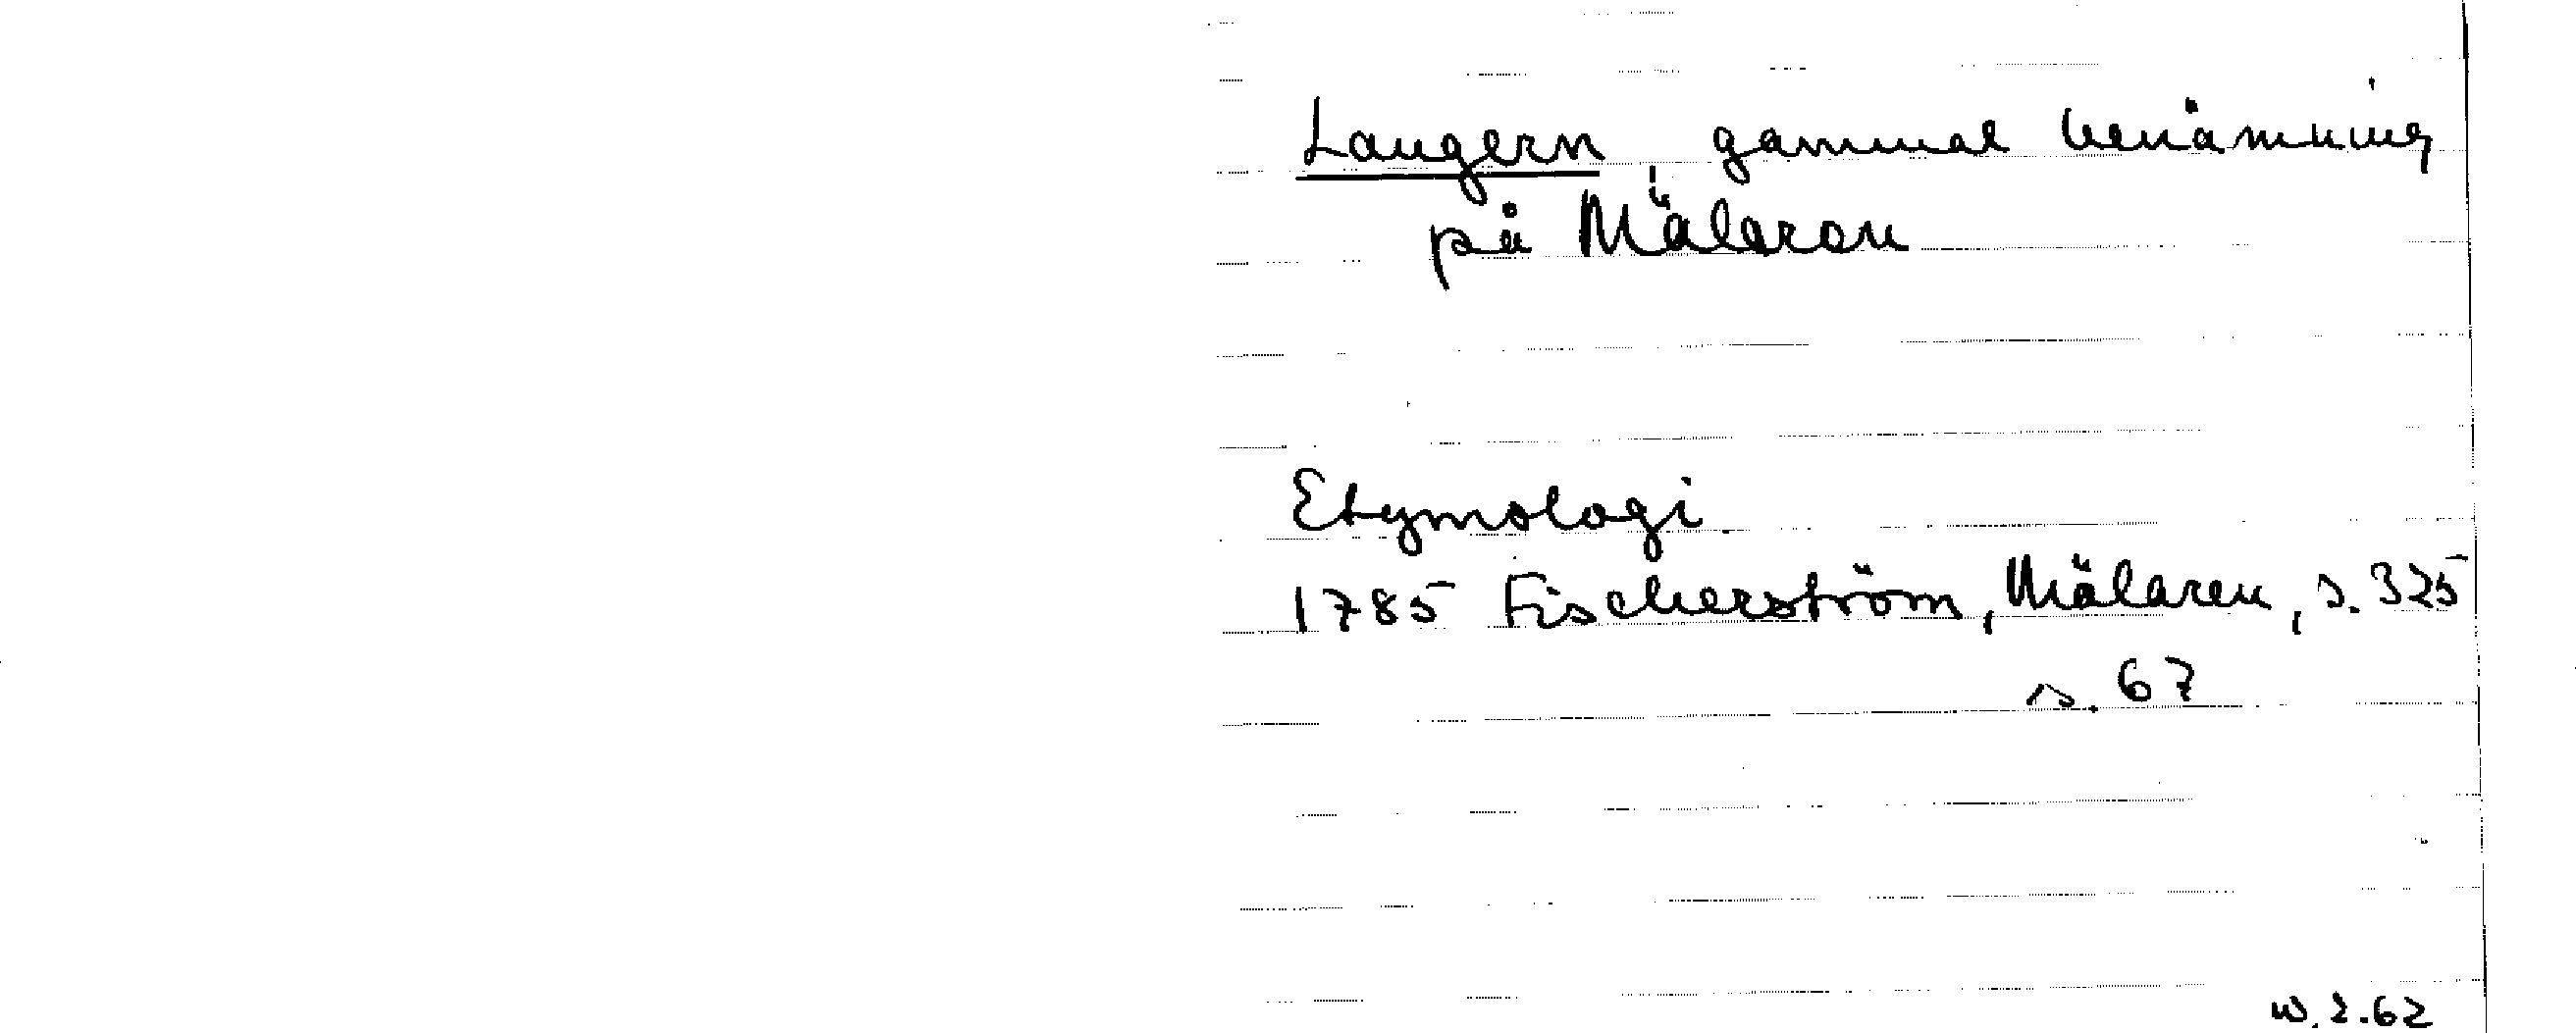 Laugern, gammal benämning
på Mälaren
Etymologi.
1785 Fischerström, Mälaren, s. 325
s. 67
w. 2.62